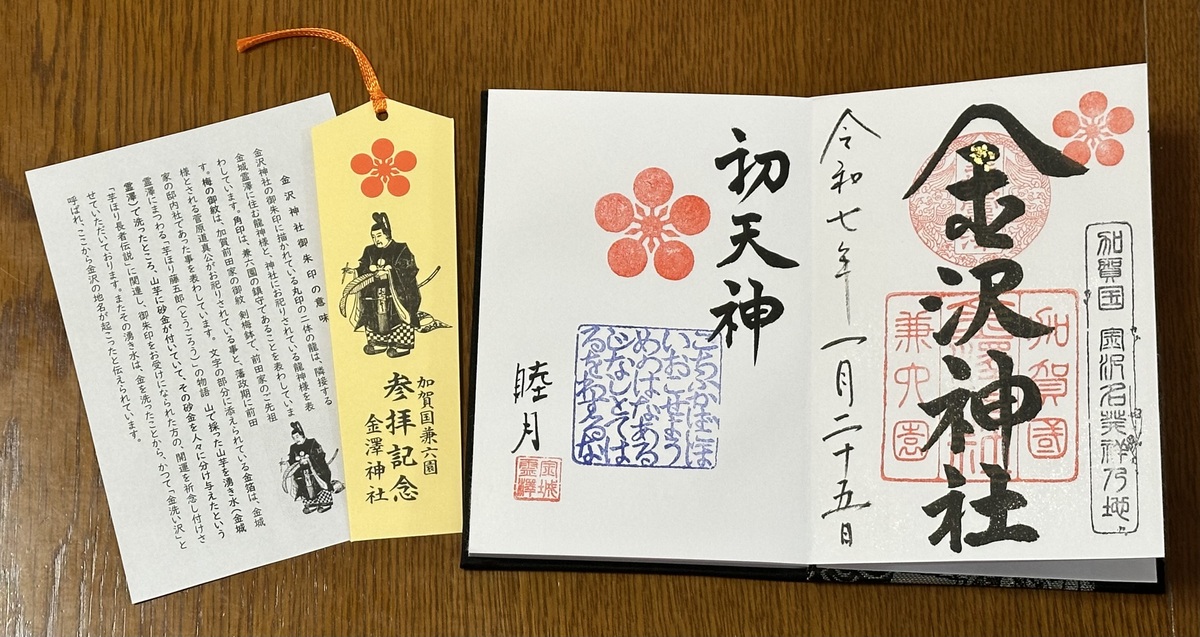 金沢神社御朱印の意味
金沢神社の御朱印に描かれている丸印の二体の龍は、隣接する
金城霊澤に住む龍神様と、神社にお祀りされている龍神様を表
わしています。角印は、兼六園の鎮守であることを表わしていま
す。梅の御紋は、加賀前田家の御紋 剣梅鉢で、前田家のご先祖
様とされる菅原道真公がお祀りされている事と、藩政期に前田
家の邸内社であった事を表わしています。 文字の部分に添えられている金箔は、金城
霊澤にまつわる「芋ほり藤五郎(とうごろう)」の物語 山で採った山芋を湧き水(金城
霊澤)で洗ったところ、山芋に砂金が付いていて、その砂金を人々に分け与えたという
「芋ほり長者伝説」に関連し、御朱印をお受けになられた方の、開運を祈念し付けさ
せていただいております。またその湧き水は、金を洗ったことから、かつて「金洗い沢」と
呼ばれ、ここから金沢の地名が起こったと伝えられています。
加賀国兼六園
叅拝記念
金澤神社
加賀国 金沢名発祥乃地
加賀國
兼六園
金沢神社
令和七年一月二十五日
初天神
こちふかばにほ
いおこせよう
めのはなある
じなしとては
るをわするな
睦月
金城
霊澤